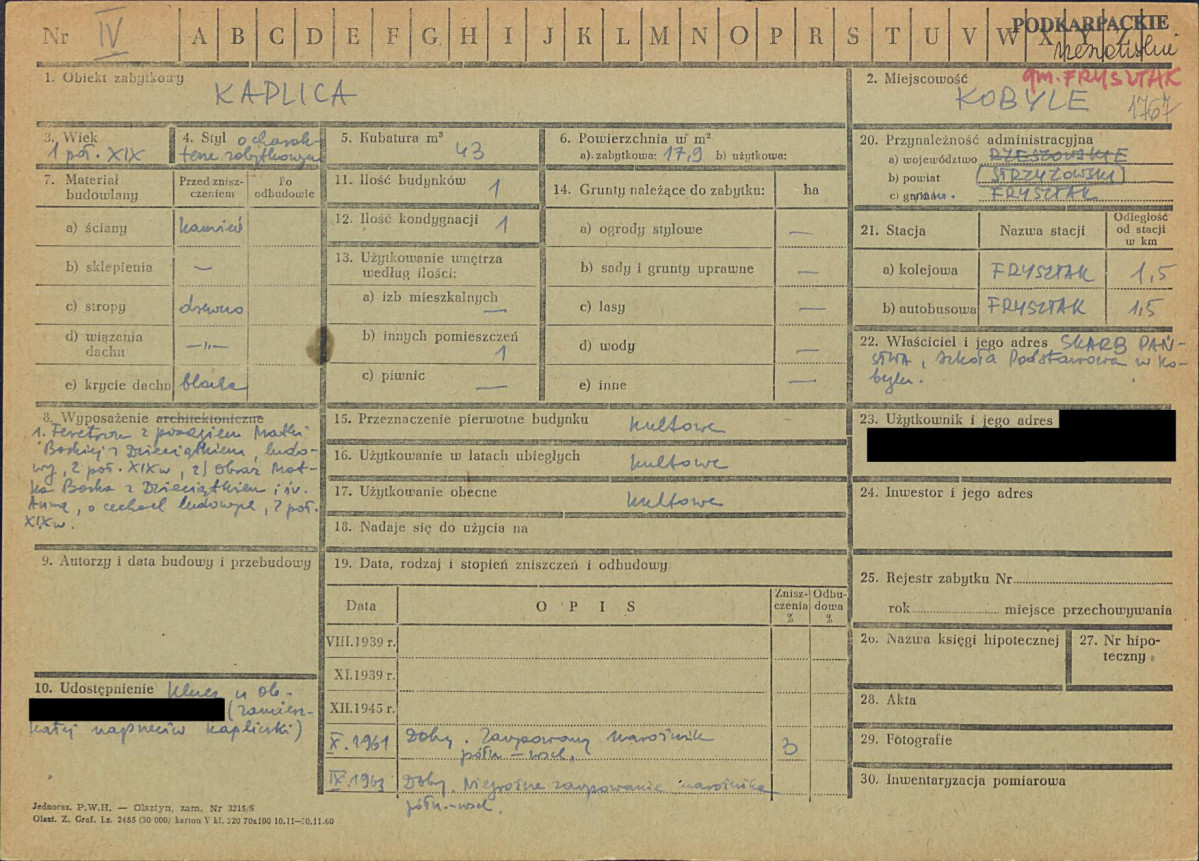 Nr IV A B C D E F G H I J K L M N O P R S T U V W X
PODKARPACKIE
1. Obiekt zabytkowy
KAPLICA
2. Miejscowość
gm. FRYSZTAK
KOBYLE 1767
3. Wiek
1 poł. XIX
4. Styl o charak-
terze zabytkowym
5. Kubatura m³ 43
6. Powierzchnia w m²
a). zabytkowa: 17,9 b) użytkowa:
7. Materiał budowlany
Przed znisz-
czeniem
Po
odbudowie
a) ściany kamień
b) sklepienia —
c) stropy drewno
d) wiązania
dachu —„—
e) krycie dachu blacha
8. Wyposażenie architektoniczne
1. Feretron z posągiem Matki
Boskiej z Dzieciątkiem, ludo-
wy, 2 poł. XIX w, 2) Obraz Mat-
ka Boska z Dzieciątkiem i św.
Anną, o cechach ludowych, 2 poł.
XIX w.
9. Autorzy i data budowy i przebudowy
10. Udostępnienie Klucz u Ob-
(zamiesz-
kałej naprzeciw kapliczki)
11. Ilość budynków 1
12. Ilość kondygnacji 1
13. Użytkowanie wnętrza
według ilości:
a) izb mieszkalnych —
b) innych pomieszczeń
1
c) piwnic —
14. Grunty należące do zabytku: ha
a) ogrody stylowe —
b) sady i grunty uprawne —
c) lasy —
d) wody —
e) inne —
15. Przeznaczenie pierwotne budynku kultowe
16. Użytkowanie w latach ubiegłych kultowe
17. Użytkowanie obecne kultowe
18. Nadaje się do użycia na
19. Data, rodzaj i stopień zniszczeń i odbudowy
Data O P I S
Znisz-
czenia
%
Odbu-
dowa
%
VIII.1939 r.
XI.1939 r.
XII.1945 r.
X.1961 Dobry. Zarysowany narożnik
półn-wsch. 3
IX.1963 Dobry. Niegroźne zarysowanie narożnika
półn.-wsch.
20. Przynależność administracyjna
a) województwo RZESZOWSKIE
b) powiat (STRZYŻOWSKI)
c) FRYSZTAK
21. Stacja Nazwa stacji
Odległość
od stacji
w km
a) kolejowa FRYSZTAK 1,5
b) autobusowa FRYSZTAK 1,5
22. Właściciel i jego adres SKARB PAŃ-
STWA, Szkoła Podstawowa w Ko-
bylu.
23. Użytkownik i jego adres
24. Inwestor i jego adres
25. Rejestr zabytku Nr
rok miejsce przechowywania
26. Nazwa księgi hipotecznej
27. Nr hipo-
teczny
28. Akta
29. Fotografie
30. Inwentaryzacja pomiarowa
Jednoraz. P.W.H. — Olsztyn, zam. Nr 3215/S
Olszt. Z. Graf. Lz. 2485 (30 000) karton V kl. 220 70x100 10.11—30.11.60